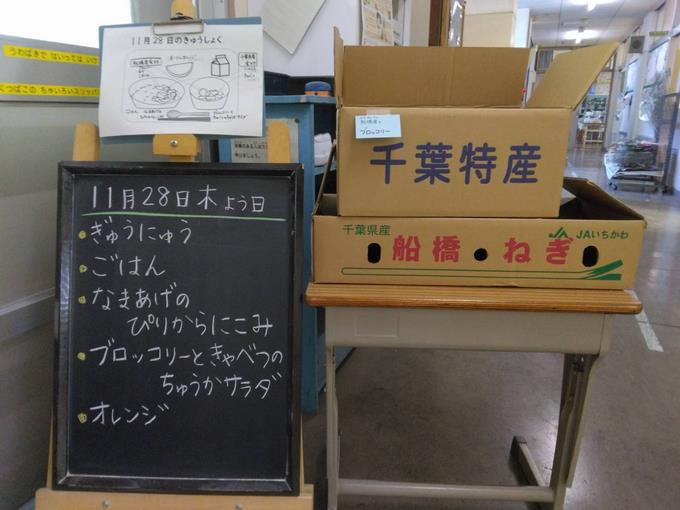 うわばきで はいっては いけ
くつばこの ちゃいろいスリッパ
11月28日のきゅうしょく
11月28日木よう日
ぎゅうにゅう
ごはん
なまあげの
ぴりからにこみ
ブロッコリーときゃべつの
ちゅうかサラダ
オレンジ
船橋産の
ブロッコリー
千葉特産
千葉県産
船橋・ねぎ
JAいちかわ